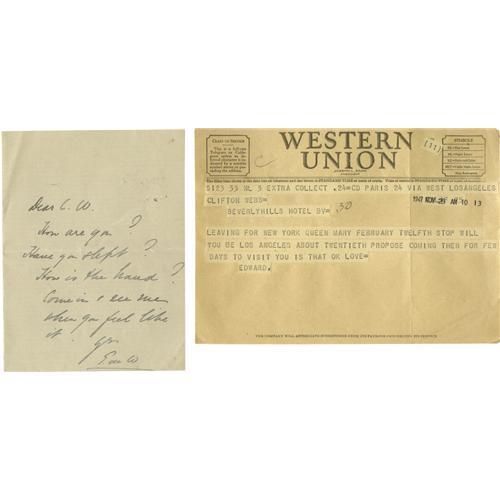 Dear C. W.
How are you?
Have you slept?
How is the hand?
Come in & see me
when you feel like
it.
WESTERN
UNION
CLASS OF SERVICE
SYMBOLS
(11)
S123 33 NL 3 EXTRA COLLECT .24=CD PARIS 24 VIA WEST LOSANGELES
CLIFTON WEBB=
1947 NOV 25 AM 10 13
BEVERLYHILLS HOTEL BV= .30
LEAVING FOR NEW YORK QUEEN MARY FEBRUARY TWELFTH STOP WILL
YOU BE LOS ANGELES ABOUT TWENTIETH PROPOSE COMING THEN FOR FEW
DAYS TO VISIT YOU IS THAT OK LOVE=
EDWARD.
THE COMPANY WILL APPRECIATE SUGGESTIONS FROM ITS PATRONS CONCERNING ITS SERVICE